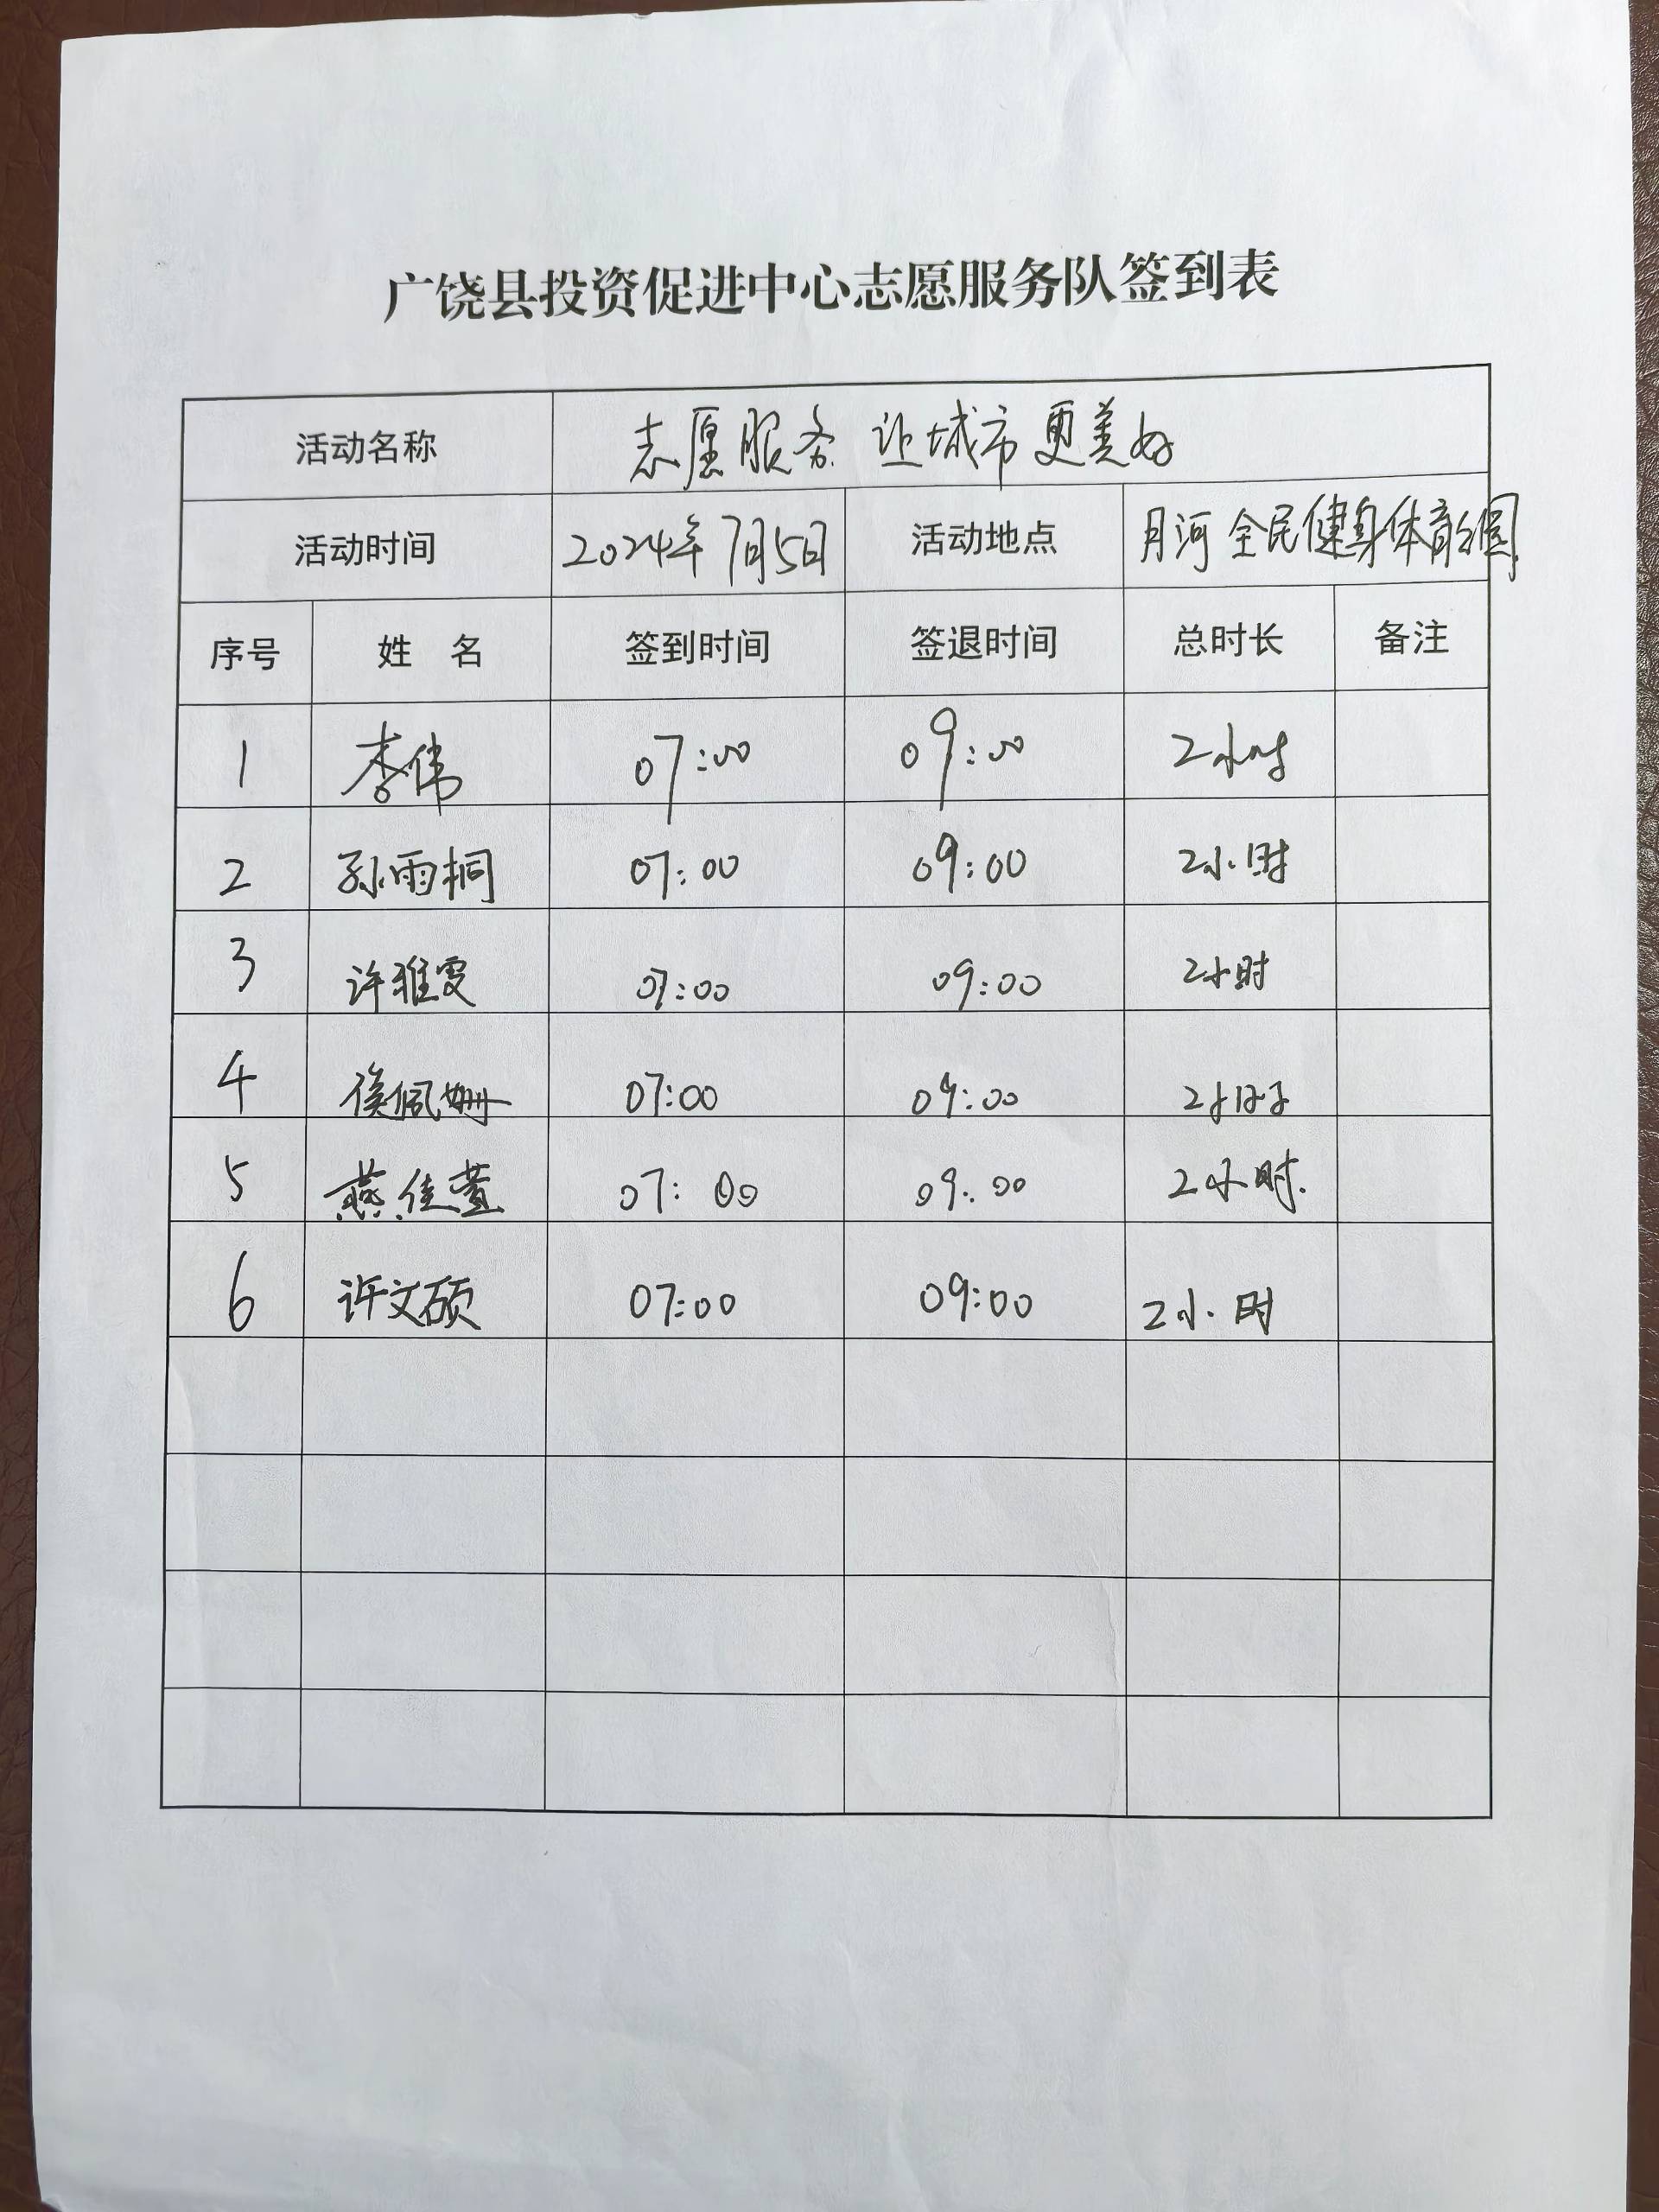 广饶县投资促进中心志愿服务队签到表
活动名称 志愿服务 让城市更美好
活动时间 2024年7月5日 活动地点 月河全民健身体育公园
序号 姓 名 签到时间 签退时间 总时长 备注
1 李伟 07:00 09:00 2小时
2 孙雨桐 07:00 09:00 2小时
3 许雅雯 07:00 09:00 2小时
4 侯佩姗 07:00 09:00 2小时
5 燕佳萱 07:00 09:00 2小时.
6 许文硕 07:00 09:00 2小时